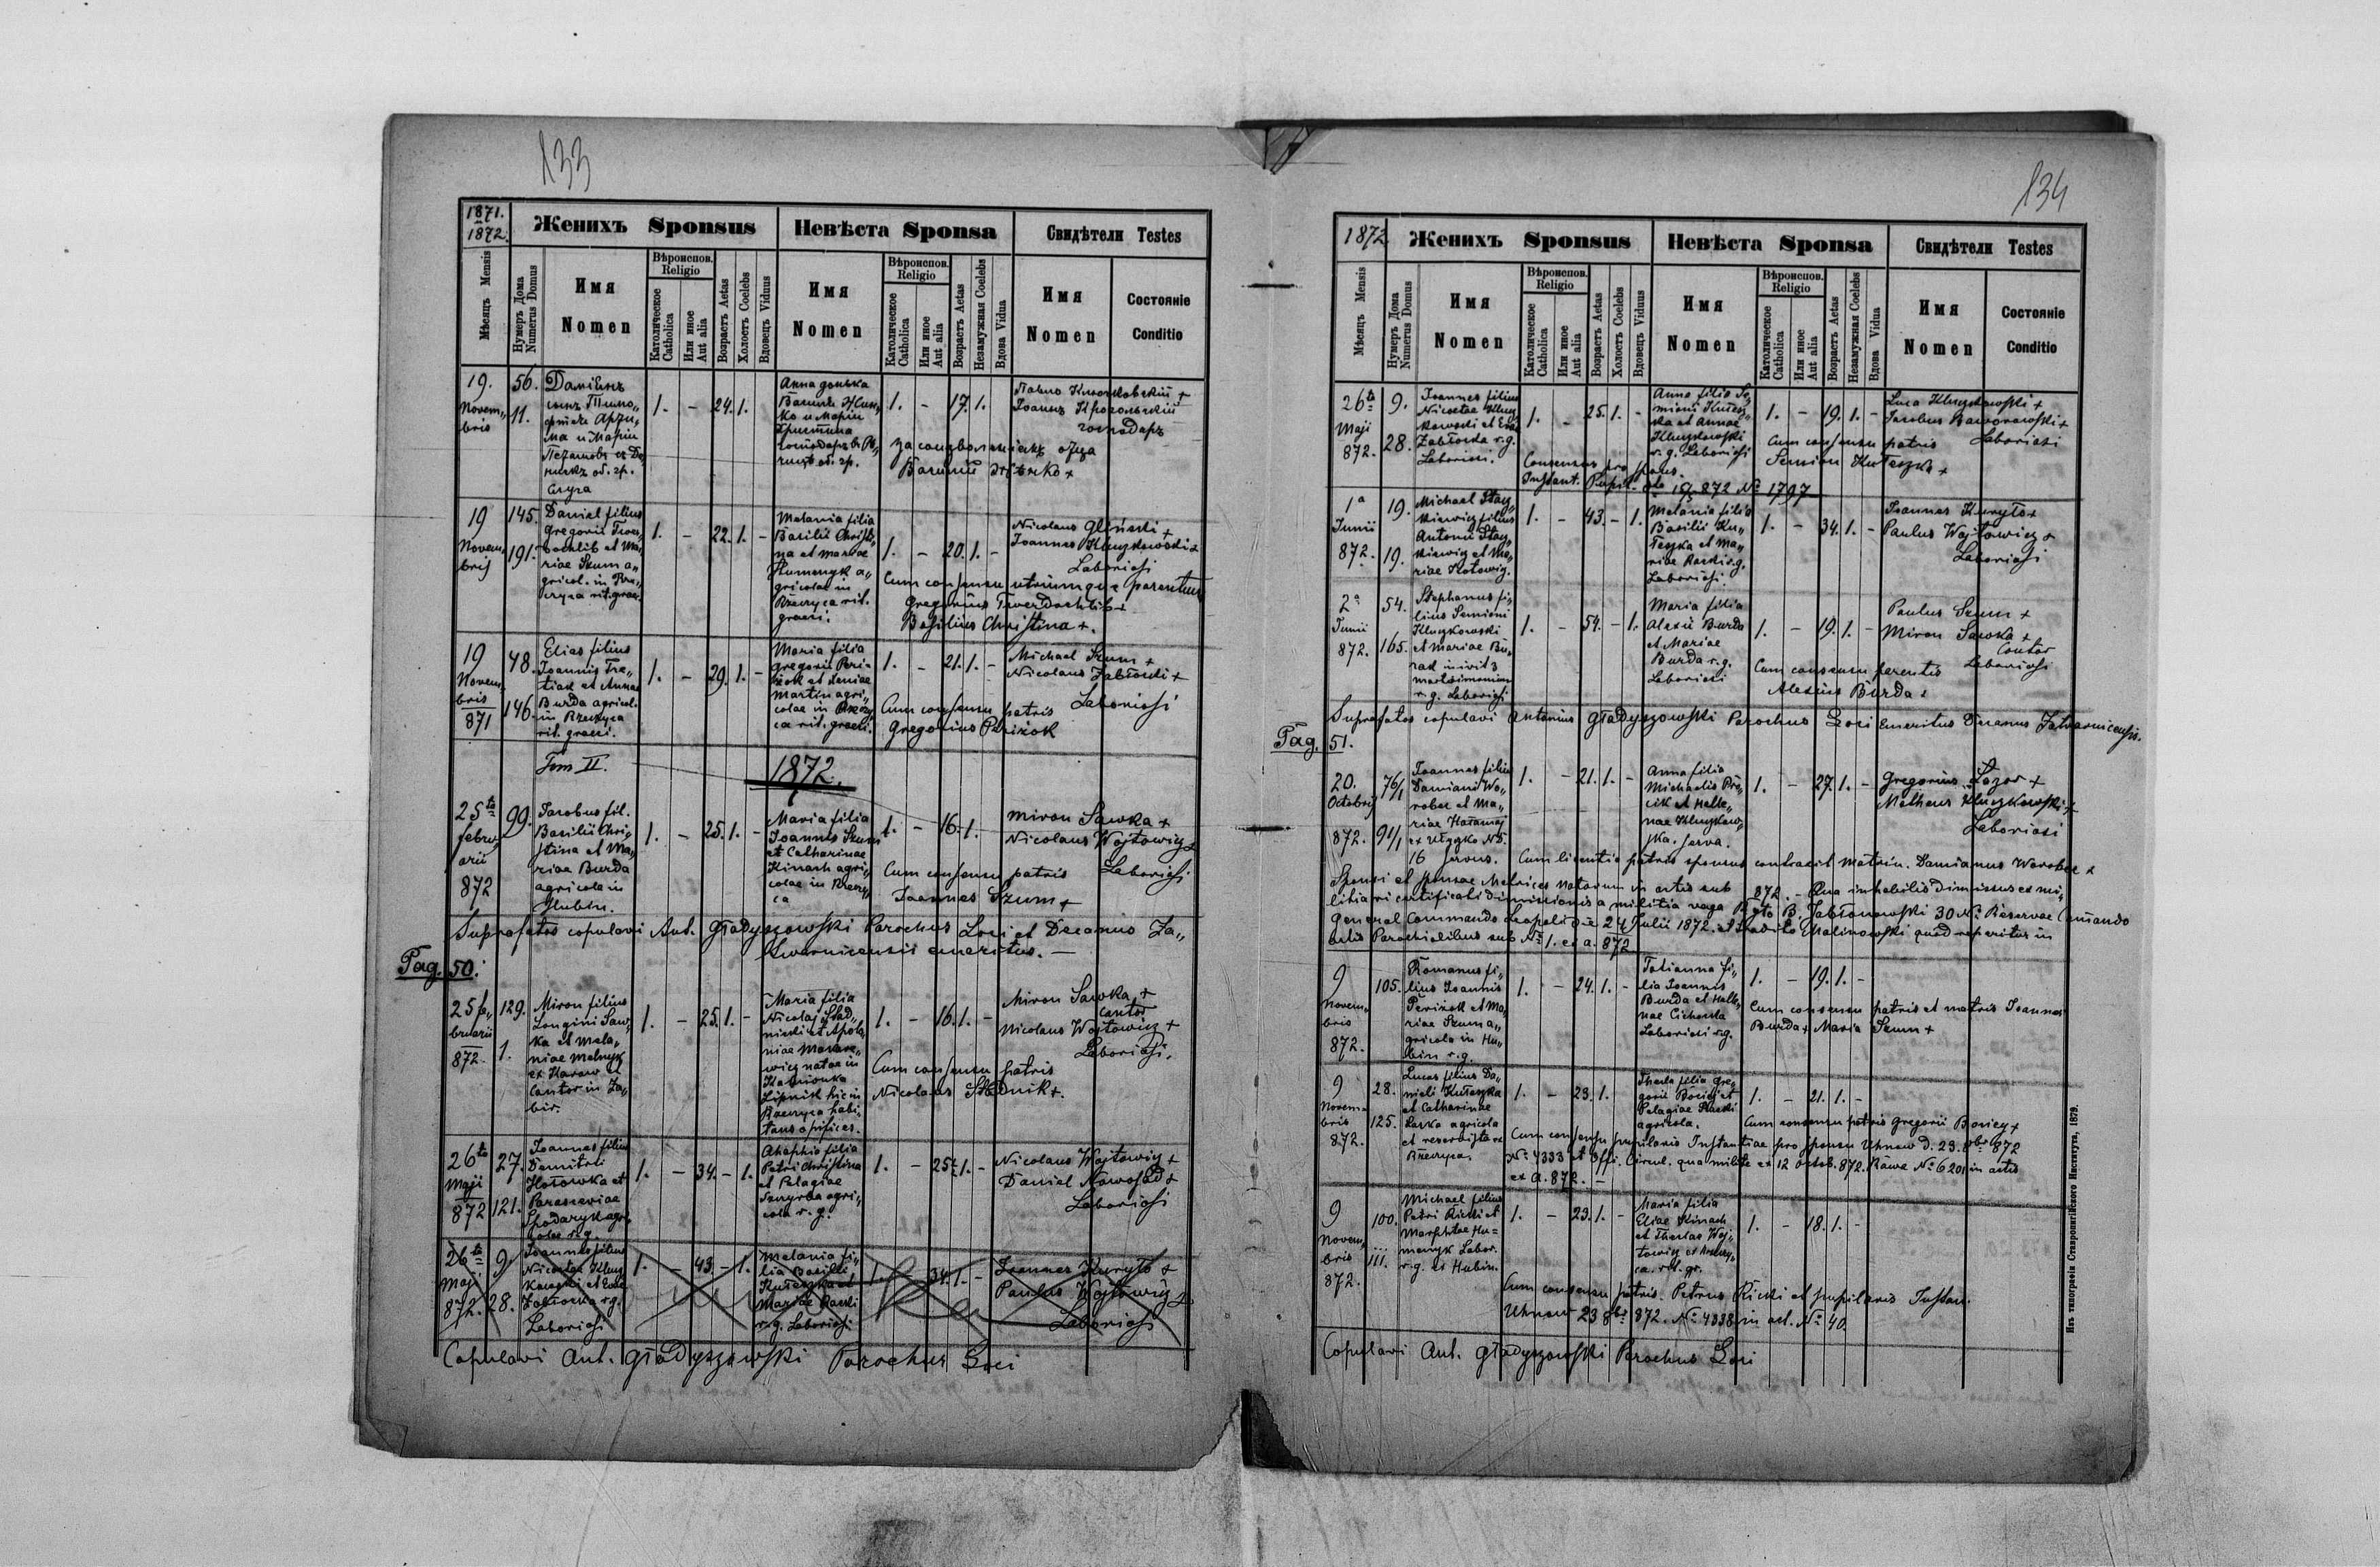 133
1871.
1872.
Женихъ Sponsus
Невѣста Sponsa
Свидѣтели Testes
Мѣсяцъ Mensis
Нумеръ Дома
Numerus Domus
Имя
Nomen
Вѣроиспов.
Religio
Католическое
Catholica
Или иное
Aut alia
Возрастъ Aetas
Холостъ Coelebs
Вдовецъ Viduus
Имя
Nomen
Вѣроиспов.
Religio
Католическое
Catholica
Или иное
Aut alia
Возрастъ Aetas
Незамужная Coelebs
Вдова Vidua
Имя
Nomen
Состояніе
Conditio
19.
Novem„
bris
56.
11.
Даміянъ
сынъ Тимо„
и Маріи
об. гр.
1. - 24. 1.
Анна донька
и Маріи
об. гр.
1. - 17. 1.
Іоаннъ
господаръ
за соизволеніемъ отца
19
Novem„
bris
145.
191.
Daniel filius
Gregorii Twer„
dochlib et Ma„
riae Szum a„
gricol. in Rze„
czyca rit. graec.
1. - 22. 1. -
Melania filia
Basilii Christi„
na et Mariae
Humenyk a„
gricolae in
Rzeczyca rit.
graeci.
1. - 20. 1. -
Nicolaus Gliński +
Joannes Kluczkowski +
Laboriosi
Cum consensu utriumque parentum
Gregorius Twerdochlib +
Basilius Christina +.
19
Novem„
bris
871
48.
146.
Elias filius
Joannis Tre„
tiak et Annae
Burda agricol.
in Rzeczyca
rit. graeci.
1. - 29. 1. -
Maria filia
Gregorii Peri„
żok et Xeniae
Martin agri„
colae in Rzeczy„
ca rit. graeci.
1. - 21. 1. -
Michael Szum +
Nicolaus Zabłocki +
Laboriosi
Cum consensu patris
Gregorius Periżok
Tom II.
1872.
25ta
febru„
arii
872
99.
Jacobus fil.
Basilii Chri„
stina et Ma„
riae Burda
agricola in
Hubin.
1. - 25. 1. -
Maria filia
Joannis Szum
et Catharinae
Kinach agri„
colae in Rzeczy„
ca
1. - 16. 1.
Miron Sawka +
Nicolaus Wojtowicz +
Laboriosi
Cum consensu patris
Joannes Szum +
Suprafatos copulavi Ant. Gładyszowski Parochus Loci et Decanus Za„
twarnicensis emeritus. —
Pag. 50.
25 fe„
bruarii
872.
129.
1.
Miron filius
Longini Saw„
ka et Mela„
niae Melnyk
ex Karow et
Cantor in Za„
bir.
1. - 25. 1. -
Maria filia
Nicolai Stad„
nicki et Apolo„
niae Makare„
wicz natae in
Kamionka
Lipnik hic in
Rzeczyca habi„
tans opifices.
1. - 16. 1. -
Miron Sawka +
Cantor
Nicolaus Wojtowicz +
Laboriosi.
Cum consensu patris
Nicolaus Stadnik +.
26ta
Maji
872
27.
121.
Joannes filius
Demitrii
Hołowka et
Parasceviae
Spodaryk agri„
colae r. g.
1. - 34. - 1.
Ahaphia filia
Petri Christina
et Pelagiae
agri„
cola r. g.
1. - 25. 1. -
Nicolaus Wojtowicz +
Daniel Nawosad +
Laboriosi
26ta
Maji
872.
9.
28.
Joannes filius
Nicetae Klucz„
kowski et Evae
Zabłocka r. g.
Laboriosi
1. - 43. - 1.
Melania fi„
lia Basilii
Kułeszka et
Mariae Racki
r. g. Laboriosi
1. 34. 1. -
Joannes Kuryło +
Paulus Wojtowicz +
Laboriosi
Copulavi Ant. Gładyszowski Parochus Loci
134
1872
Женихъ Sponsus
Невѣста Sponsa
Свидѣтели Testes
Мѣсяцъ Mensis
Нумеръ Дома
Numerus Domus
Имя
Nomen
Вѣроиспов.
Religio
Католическое
Catholica
Или иное
Aut alia
Возрастъ Aetas
Холостъ Coelebs
Вдовецъ Viduus
Имя
Nomen
Вѣроиспов.
Religio
Католическое
Catholica
Или иное
Aut alia
Возрастъ Aetas
Незамужная Coelebs
Вдова Vidua
Имя
Nomen
Состояніе
Conditio
26ta
Maji
872.
9.
28.
Joannes filius
Nicetae Klucz„
kowski et Evae
Zabłocka r. g.
Laboriosi.
1. - 25. 1. -
Anna filia Se„
mioni Kułesz„
ka et Annae
Kluczkowski
r. g. Laboriosi
1. - 19. 1. -
Luca Kluczkowski +
Jacobus Baworowski +
Laboriosi
Cum consensu patris
Semion Kułeszka +
Consensus pro spons.
Instant. Pupil. 872 No 1797
1a
Junii
872.
19.
19.
Michael Stasz„
kiewicz filius
Antonii Stasz„
kiewicz et Ma„
riae Kotowicz.
1. - 43. - 1.
Melania filia
Basilii Ku„
łeszka et Ma„
riae Racki r. g.
Laboriosi.
1. - 34. 1. -
Joannes Kuryło +
Paulus Wojtowicz +
Laboriosi
2a
Junii
872.
54.
165.
Stephanus fi„
lius Semioni
Kluczkowski
et Mariae Bu„
rad inivit 3
matrimonium
r. g. Laboriosi
1. - 54. - 1.
Maria filia
Alexii Burda
et Mariae
Burda r. g.
Laboriosi
1. - 19. 1. -
Paulus Szum +
Miron Sawka +
Cantor
Laboriosi
Cum consensu parentis
Alexius Burda +
Suprafatos copulavi Antonius Gładyszowski Parochus Loci Emeritus Decanus Zatwarnicensis.
Pag. 51.
20.
Octobris
872.
76/1
91/1
Joannes filius
Damiani Wo„
robec et Ma„
riae Harasimaj
ex Ułyczko NB.
16 servus.
1. - 21. 1. -
Anna filia
Michaelis Pre„
cik et Hele„
nae Kluczkow„
ska. serva.
1. - 27. 1. -
Gregorius Łazor +
Matheus Kluczkowski +
Laboriosi
Cum licentia patris sponsus contraxit matrim. Damianus Worobec +
Sponsi et sponsae Matrices natorum in actis sub 872. - Qua inhabilis dimissus ex mi„
litia vi certificati dimissionis a militia
General Commando Leopoli die 24 Julii 1872. Malinowski quod reperitur in
actis Parochialibus sub No 1. ex a. 872
9
Novem„
bris
872.
105.
Romanus fi„
lius Joannis
Periżok et Ma„
riae Szum a„
gricola in Hu„
bin r. g.
1. - 24. 1. -
Tatianna fi„
lia Joannis
Burda et Hele„
nae Cichocka
Laboriosi r. g.
1. - 19. 1. -
Cum consensu patris et matris Joannes
Burda + Maria Szum +
9
Novem„
bris
872.
28.
125.
Lucas filius Da„
nieli Kułeszka
et Catharinae
Laska agricola
et reservista ex
Rzeczyca.
1. - 23. 1.
Thecla filia Gre„
gorii Boniej et
Pelagiae
agricola.
1. - 21. 1. -
Cum consensu patris Gregorii Boniey +
Cum consensu pupilaris Instantiae pro sponsu Uhnow d. 23. 8bris 872
No 4333 et Offi. Circul. qua milite ex 12 Octob. 872. Rawe No 6201 in actis
ex A. 872. -
9
Novem„
bris
872.
100.
...
111.
Michael filius
Petri Ricki et
Marphtae Hu=
menyk Labor.
r. g. ex Hubin.
1. - 23. 1. -
Maria filia
Eliae Kinach
et Theclae Woj„
towicz ex Rzeczy„
ca. rit. gr.
1. - 18. 1. -
Cum consensu patris. Petrus Ricki et pupilaris Instan.
Uhnow 23 8br 872. No 4338 in act. No 40.
Copulavi Ant. Gładyszowski Parochus Loci
Изъ типографіи Ставропигійского Института, 1879.